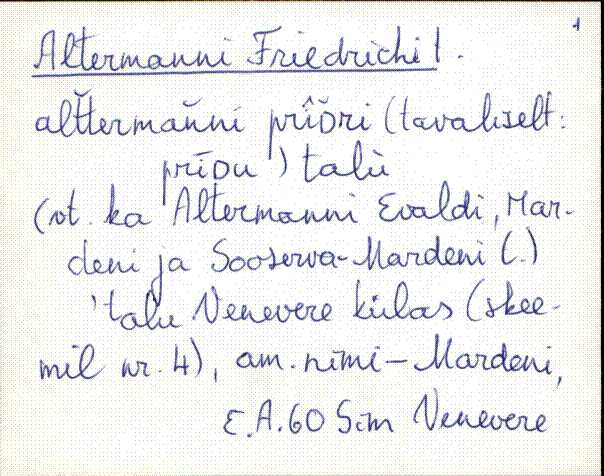 1
Altermanni Friedrichi t.
al̆t̆terman̆ni prîŏri (tavaliselt:
prīou) talù
(vt. ka Altermanni Evaldi, Mar-
deni ja Sooserva-Mardeni (.)
'talu Venevere külas (skee-
mil nr. 4), am. nimi - Mardeni,
E.A. 60 Sim Venevere